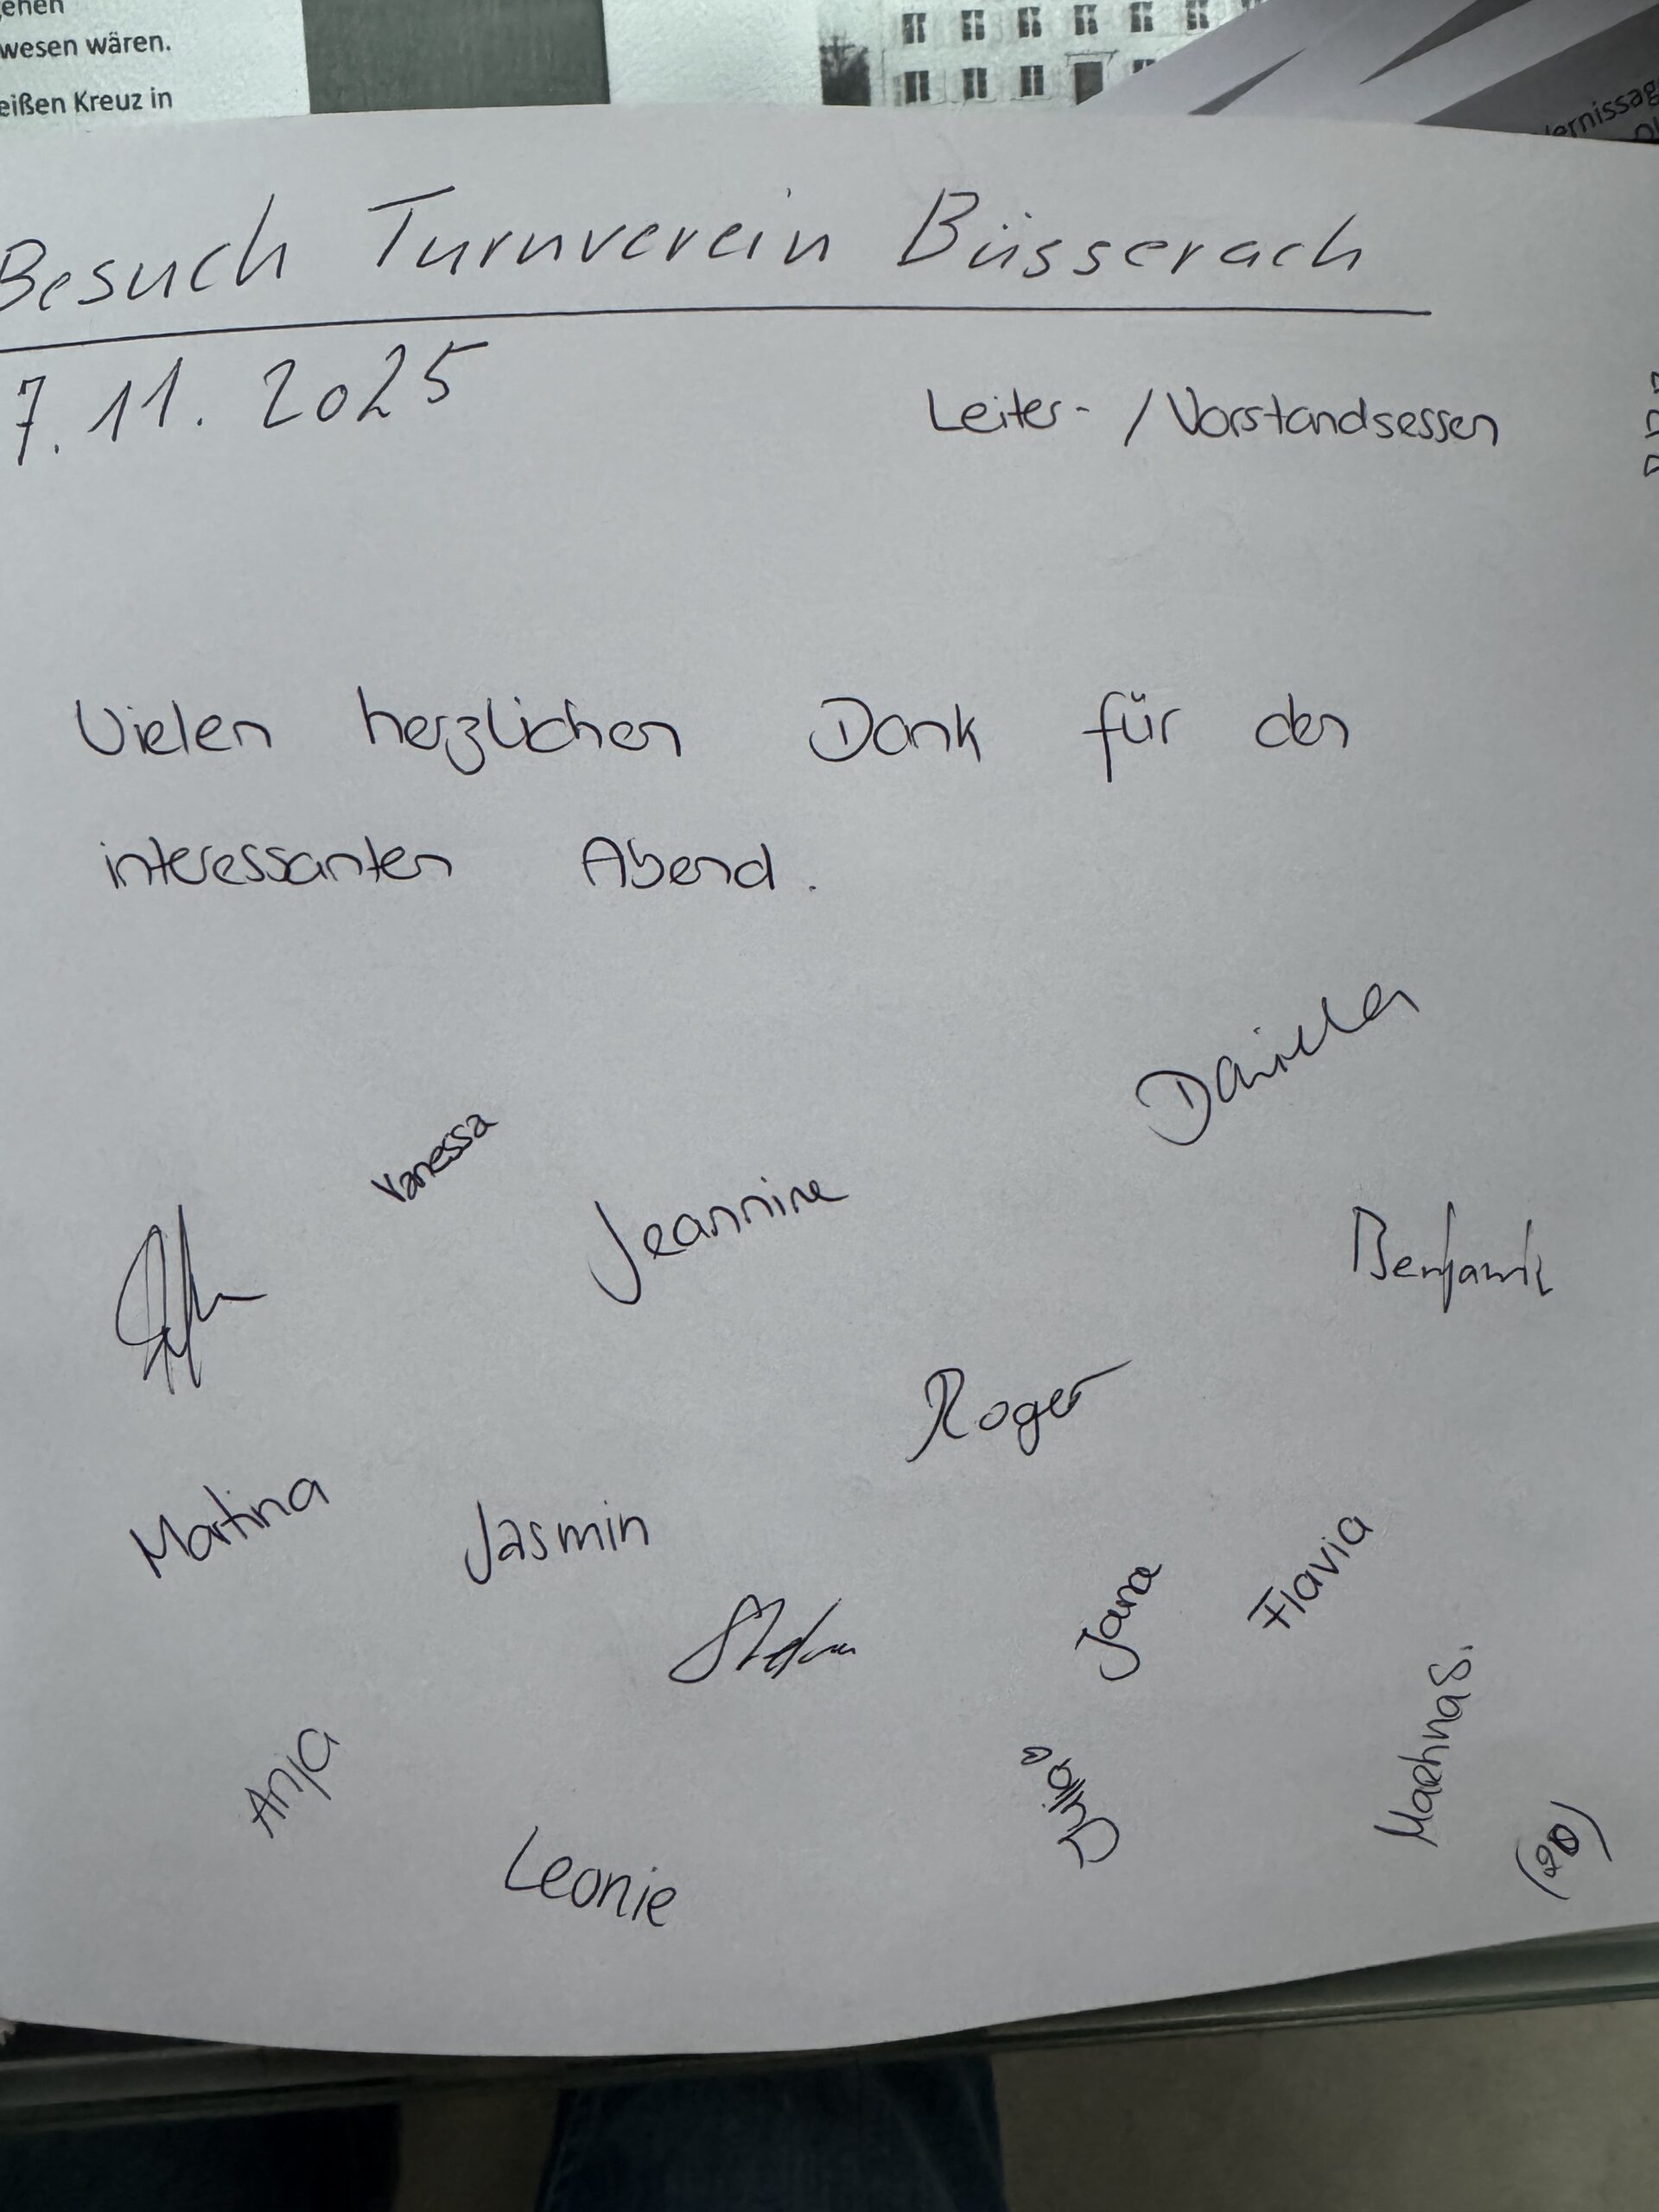 wesen wären.
eißen Kreuz in
Besuch Turnverein Büsserach
7.11.2025
Leiter- / Vorstandsessen
Vielen herzlichen Dank für den
interessanten Abend.
Daniela
Vanessa
Jeannine
Benjamin
Roger
Martina
Jasmin
Flavia
Jana
Stefan
Martina S.
Anja
Julia
Leonie
(20)